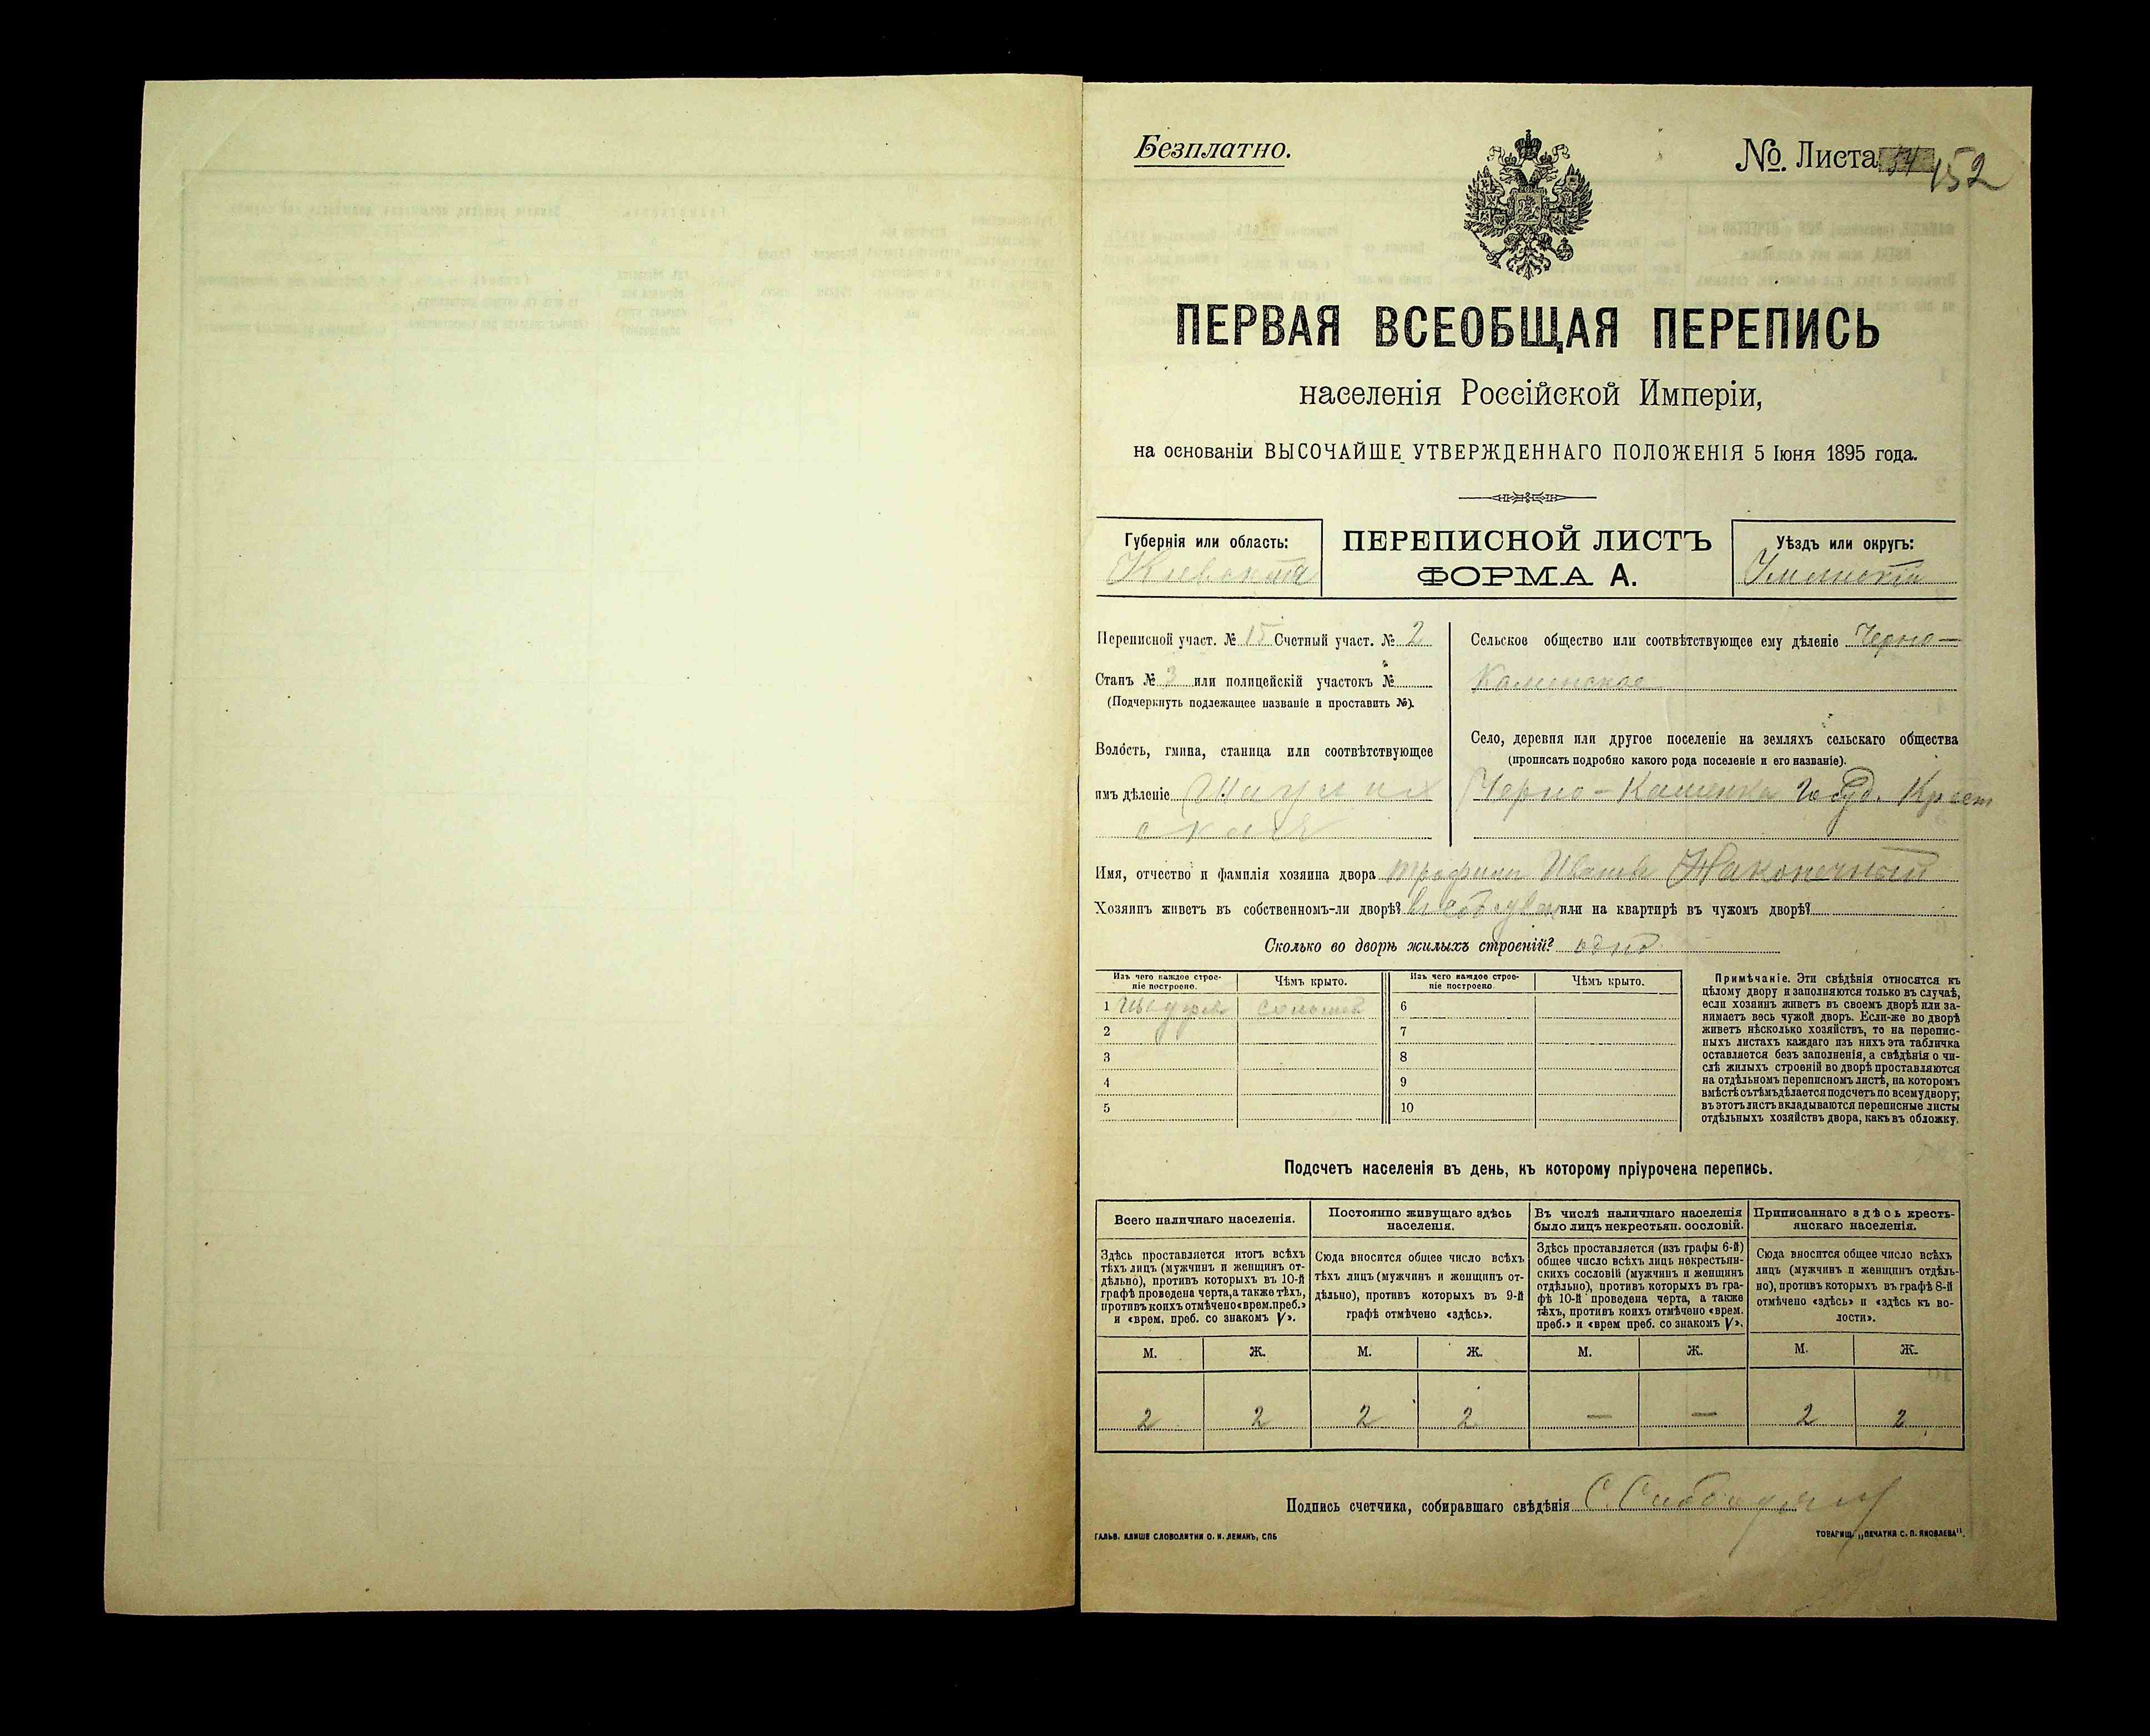 Безплатно.
№. Листа 152
ПЕРВАЯ ВСЕОБЩАЯ ПЕРЕПИСЬ
населенія Россійской Имперіи,
на основаніи ВЫСОЧАЙШЕ УТВЕРЖДЕННАГО ПОЛОЖЕНІЯ 5 Іюня 1895 года.
Губернія или область:
Кіевская
ПЕРЕПИСНОЙ ЛИСТЪ
ФОРМА А.
Уѣздъ или округъ:
Уманскій
Переписной участ. № 15 Счетный участ. № 2
Станъ № 3 или полицейскій участокъ №
(Подчеркнуть подлежащее названіе и проставить №).
Волость, гмина, станица или соотвѣтствующее
имъ дѣленіе
Сельское общество или соотвѣтствующее ему дѣленіе Черно-
Каменское
Село, деревня или другое поселеніе на земляхъ сельскаго общества
(прописать подробно какого рода поселеніе и его названіе).
Черно-Каменка Госуд. Крест
Имя, отчество и фамилія хозяина двора Трофимъ Ивановъ Наконечный
Хозяинъ живетъ въ собственномъ-ли дворѣ? или на квартирѣ въ чужомъ дворѣ?
Сколько во дворѣ жилыхъ строеній? одно
Изъ чего каждое строе-
ніе построено.
Чѣмъ крыто.
Изъ чего каждое строе-
ніе построено.
Чѣмъ крыто.
1 соломой 6
2 7
3 8
4 9
5 10
Примѣчаніе. Эти свѣдѣнія относятся къ
цѣлому двору и заполняются только въ случаѣ,
если хозяинъ живетъ въ своемъ дворѣ или за-
нимаетъ весь чужой дворъ. Если-же во дворѣ
живетъ нѣсколько хозяйствъ, то на перепис-
ныхъ листахъ каждаго изъ нихъ эта табличка
оставляется безъ заполненія, а свѣдѣнія о чи-
слѣ жилыхъ строеній во дворѣ проставляются
на отдѣльномъ переписномъ листѣ, на которомъ
вмѣстѣ съ тѣмъ дѣлается подсчетъ по всему двору;
въ этотъ листъ вкладываются переписные листы
отдѣльныхъ хозяйствъ двора, какъ въ обложку.
Подсчетъ населенія въ день, къ которому пріурочена перепись.
Всего наличнаго населенія.
Здѣсь проставляется итогъ всѣхъ
тѣхъ лицъ (мужчинъ и женщинъ от-
дѣльно), противъ которыхъ въ 10-й
графѣ проведена черта, а также тѣхъ,
противъ коихъ отмѣчено «врем. преб.»
и «врем. преб. со знакомъ V».
Постоянно живущаго здѣсь
населенія.
Сюда вносится общее число всѣхъ
тѣхъ лицъ (мужчинъ и женщинъ от-
дѣльно), противъ которыхъ въ 9-й
графѣ отмѣчено «здѣсь».
Въ числѣ наличнаго населенія
было лицъ некрестьян. сословій.
Здѣсь проставляется (изъ графы 6-й)
общее число всѣхъ лицъ некрестьян-
скихъ сословій (мужчинъ и женщинъ
отдѣльно), противъ которыхъ въ гра-
фѣ 10-й проведена черта, а также
тѣхъ, противъ коихъ отмѣчено «врем.
преб.» и «врем преб. со знакомъ V».
Приписаннаго здѣсь кресть-
янскаго населенія.
Сюда вносится общее число всѣхъ
лицъ (мужчинъ и женщинъ отдѣль-
но), противъ которыхъ въ графѣ 8-й
отмѣчено «здѣсь» и «здѣсь къ во-
лости».
М. Ж. М. Ж. М. Ж. М. Ж.
2 2 2 2 — — 2 2
Подпись счетчика, собиравшаго свѣдѣнія
ГАЛЬВ. КЛИШЕ СЛОВОЛИТНИ О. И. ЛЕМАНЪ, СПБ
ТОВАРИЩ. „ПЕЧАТНЯ С. П. ЯКОВЛЕВА".